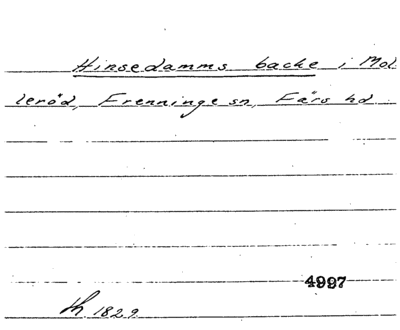 Hinsedamms backe i Mol
leröd, Frenninge sn, Färs hd
4997
th. 1829